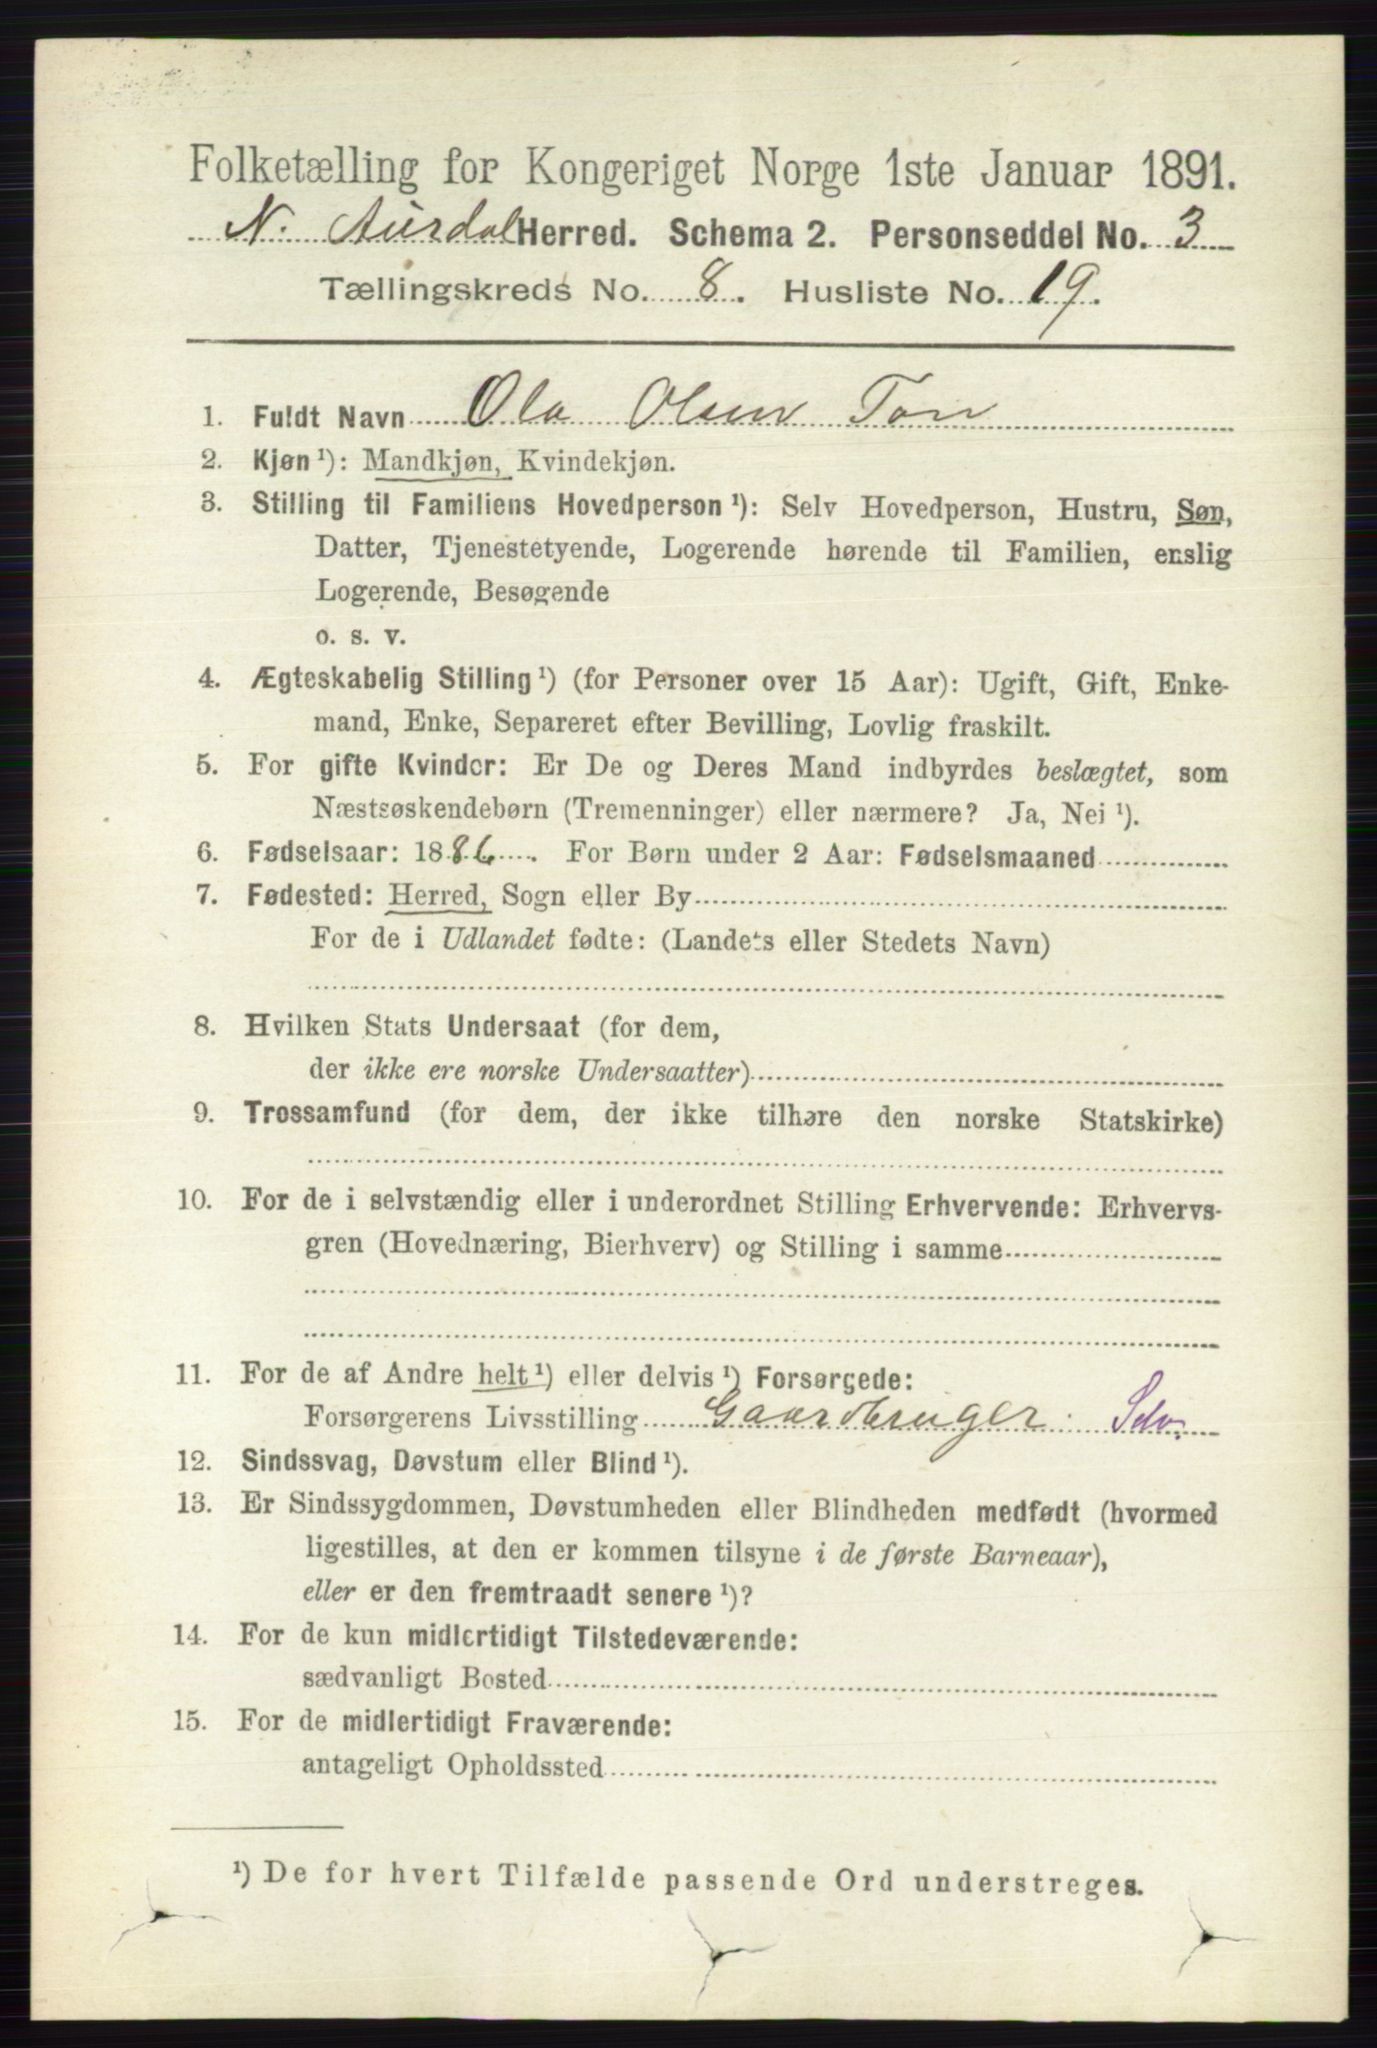 Folketælling for Kongeriget Norge 1ste Januar 1891.
N. Aurdal Herred. Schema 2. Personseddel No. 3
Tællingskreds No. 8. Husliste No. 19.
1. Fuldt Navn Ola Olsen Ton
2. Kjøn ¹): Mandkjøn, Kvindekjøn.
3. Stilling til Familiens Hovedperson ¹): Selv Hovedperson, Hustru, Søn,
Datter, Tjenestetyende, Logerende hørende til Familien, enslig
Logerende, Besøgende
o. s. v.
4. Ægteskabelig Stilling ¹) (for Personer over 15 Aar): Ugift, Gift, Enke-
mand, Enke, Separeret efter Bevilling, Lovlig fraskilt.
5. For gifte Kvinder: Er De og Deres Mand indbyrdes beslægtet, som
Næstsøskendebørn (Tremenninger) eller nærmere? Ja, Nei ¹).
6. Fødselsaar: 1886. For Børn under 2 Aar: Fødselsmaaned
7. Fødested: Herred, Sogn eller By
For de i Udlandet fødte: (Landets eller Stedets Navn)
8. Hvilken Stats Undersaat (for dem,
der ikke ere norske Undersaatter)
9. Trossamfund (for dem, der ikke tilhøre den norske Statskirke)
10. For de i selvstændig eller i underordnet Stilling Erhvervende: Erhvervs-
gren (Hovednæring, Bierhverv) og Stilling i samme
11. For de af Andre helt ¹) eller delvis ¹) Forsørgede:
Forsørgerens Livsstilling Gaardbruger. Selv.
12. Sindssvag, Døvstum eller Blind ¹).
13. Er Sindssygdommen, Døvstumheden eller Blindheden medfødt (hvormed
ligestilles, at den er kommen tilsyne i de første Barneaar),
eller er den fremtraadt senere ¹)?
14. For de kun midlertidigt Tilstedeværende:
sædvanligt Bosted
15. For de midlertidigt Fraværende:
antageligt Opholdssted
¹) De for hvert Tilfælde passende Ord understreges.